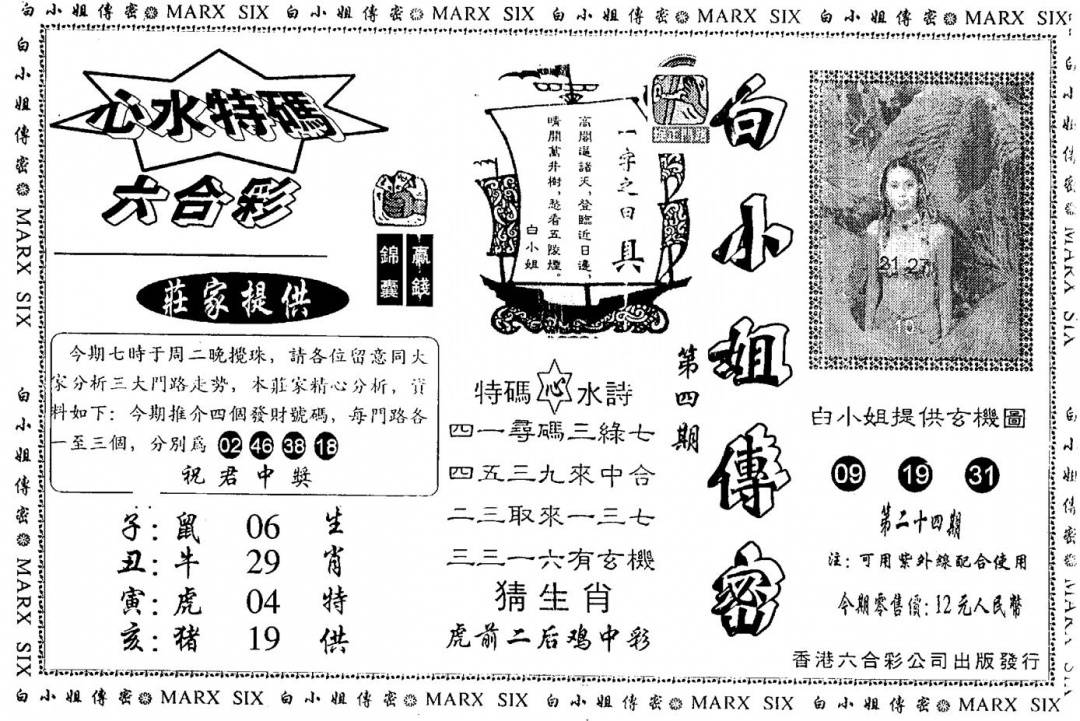 白小姐傳密 MARX SIX 白小姐傳密 MARX SIX 白小姐傳密 MARX SIX 白小姐傳密 MARX SIX
白小姐傳密 MARX SIX 白小姐傳密 MARX SIX
心水特碼
六合彩
贏錢
錦囊
莊家提供
今期七時于周二晚攪珠，請各位留意同大
家分析三大門路走勢，本莊家精心分析，資
料如下：今期推介四個發財號碼，每門路各
一至三個，分別爲 02 46 38 18
祝君中獎
子：鼠 06 生
丑：牛 29 肖
寅：虎 04 特
亥：猪 19 供
一字之曰 具
高閣逼諸天，登臨近日邊，
晴開萬井樹，愁看五陵煙。
白小姐
特碼 心 水詩
四一尋碼三綠七
四五三九來中合
二三取來一三七
三三一六有玄機
猜生肖
虎前二后鸡中彩
第四期
白小姐傳密
21 27
10
白小姐提供玄機圖
09 19 31
第二十四期
注：可用紫外線配合使用
今期零售價：12元人民幣
香港六合彩公司出版發行
MARX SIX
白小姐傳密 MARX SIX 白小姐傳密 MARX SIX 白小姐傳密 MARX SIX 白小姐傳密 MARX SIX